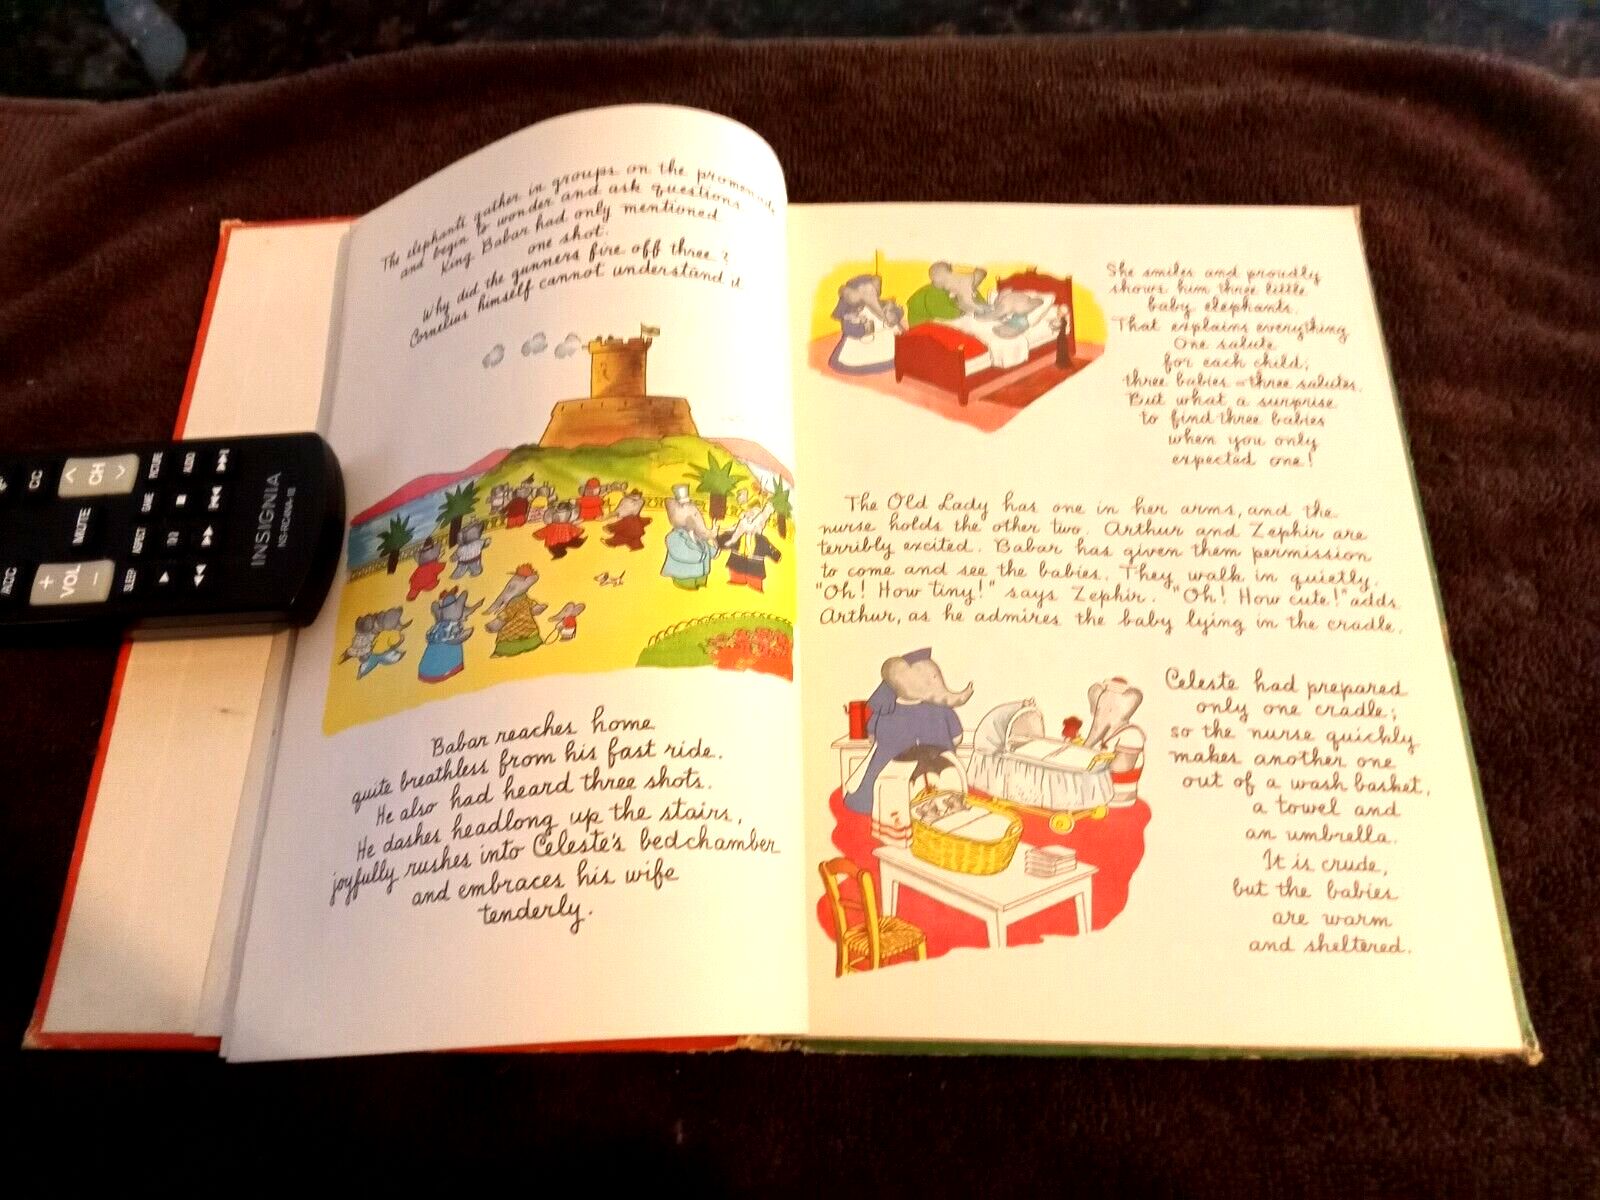 The elephants gather in groups on the promenade
and begin to wonder and ask questions
King Babar had only mentioned
one shot.
Why did the gunners fire off three?
Cornelius himself cannot understand it
Babar reaches home
quite breathless from his fast ride.
He also had heard three shots.
He dashes headlong up the stairs,
joyfully rushes into Celeste's bedchamber
and embraces his wife
tenderly.
She smiles and proudly
shows him three little
baby elephants.
That explains everything
One salute
for each child;
three babies = three salutes.
But what a surprise
to find three babies
when you only
expected one!
The Old Lady has one in her arms, and the
nurse holds the other two. Arthur and Zephir are
terribly excited. Babar has given them permission
to come and see the babies. They walk in quietly.
"Oh! How tiny!" says Zephir. "Oh! How cute!" adds
Arthur, as he admires the baby lying in the cradle.
Celeste had prepared
only one cradle;
so the nurse quickly
makes another one
out of a wash basket,
a towel and
an umbrella.
It is crude,
but the babies
are warm
and sheltered.
C/C
CH
PICTURE
AUDIO
MUTE
GAME
ASPECT
VOL
SLEEP
INSIGNIA